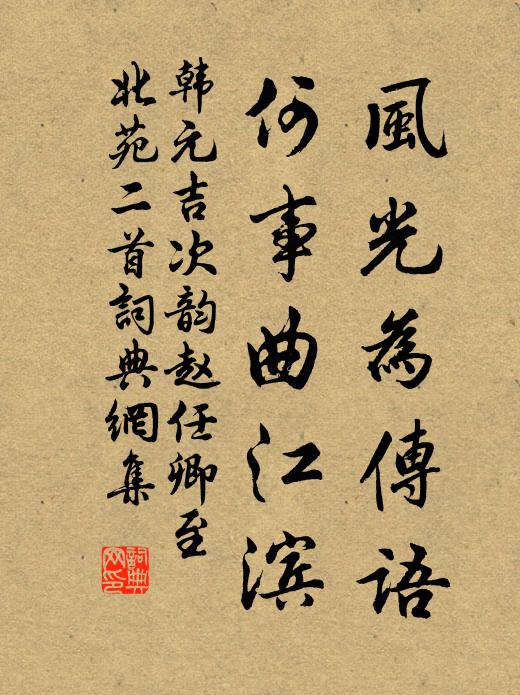 風光為傳語
何事曲江滨
韩元吉次韵赵任卿至
北苑二首詞典網集
詞典
网印